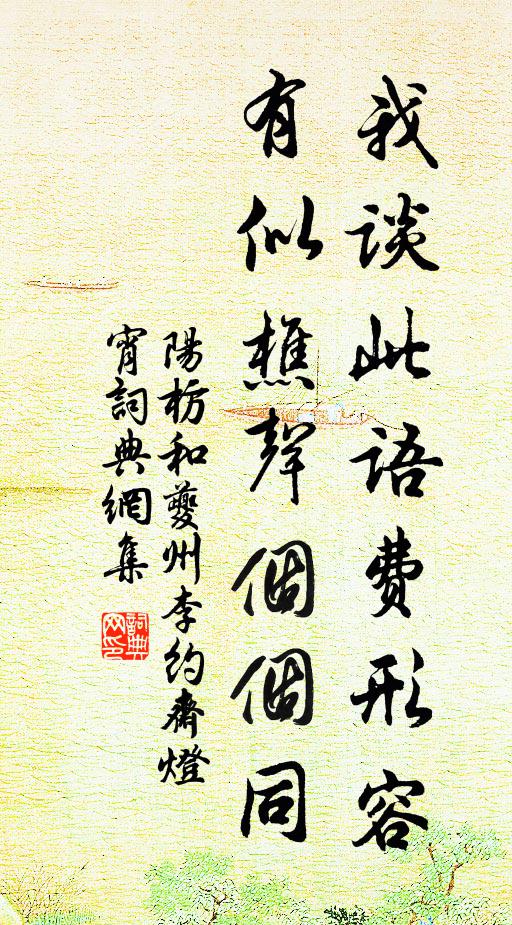 我談此語費形容
有似樵聲個個同
陽枋和夔州李約齋燈
宵詞典網集
詞典
网